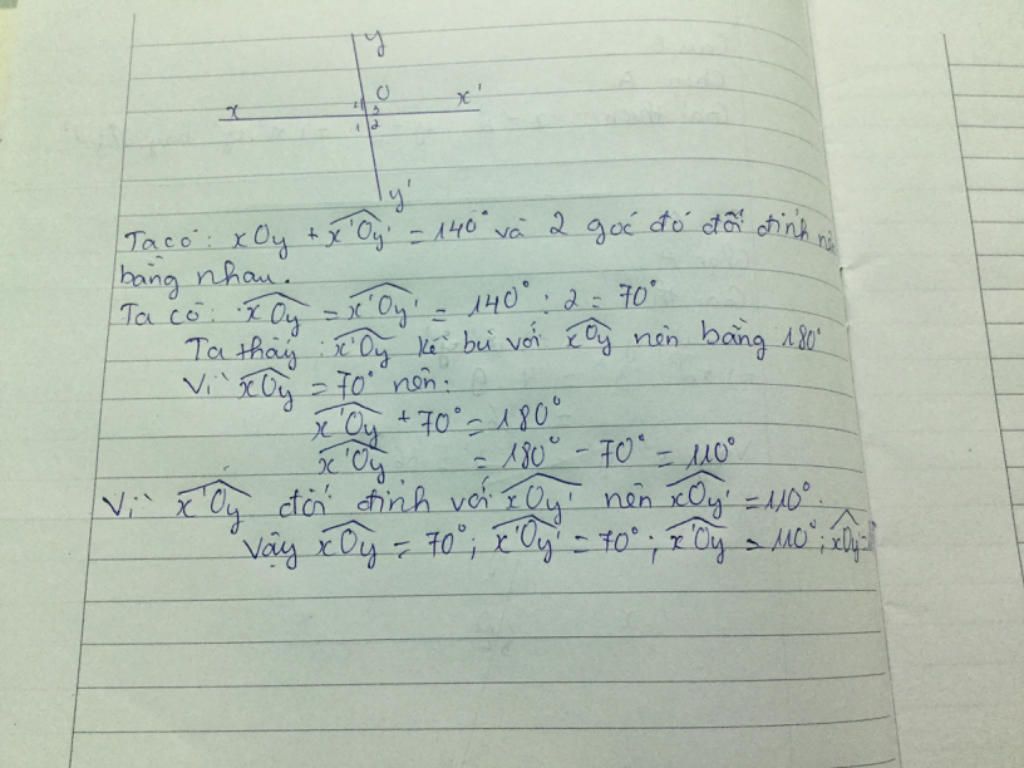 y
O
x 4 3 x'
1 2
y'
Ta có: xOy + x'Oy' = 140° và 2 góc đó đối đỉnh nên
bằng nhau.
Ta có: xOy = x'Oy' = 140° : 2 = 70°
Ta thấy: x'Oy kề bù với xOy nên bằng 180°
Vì xOy = 70° nên:
x'Oy + 70° = 180°
x'Oy = 180° - 70° = 110°
Vì x'Oy đối đỉnh với xOy' nên xOy' = 110°.
Vậy xOy = 70°; x'Oy' = 70°; x'Oy = 110°; xOy' =